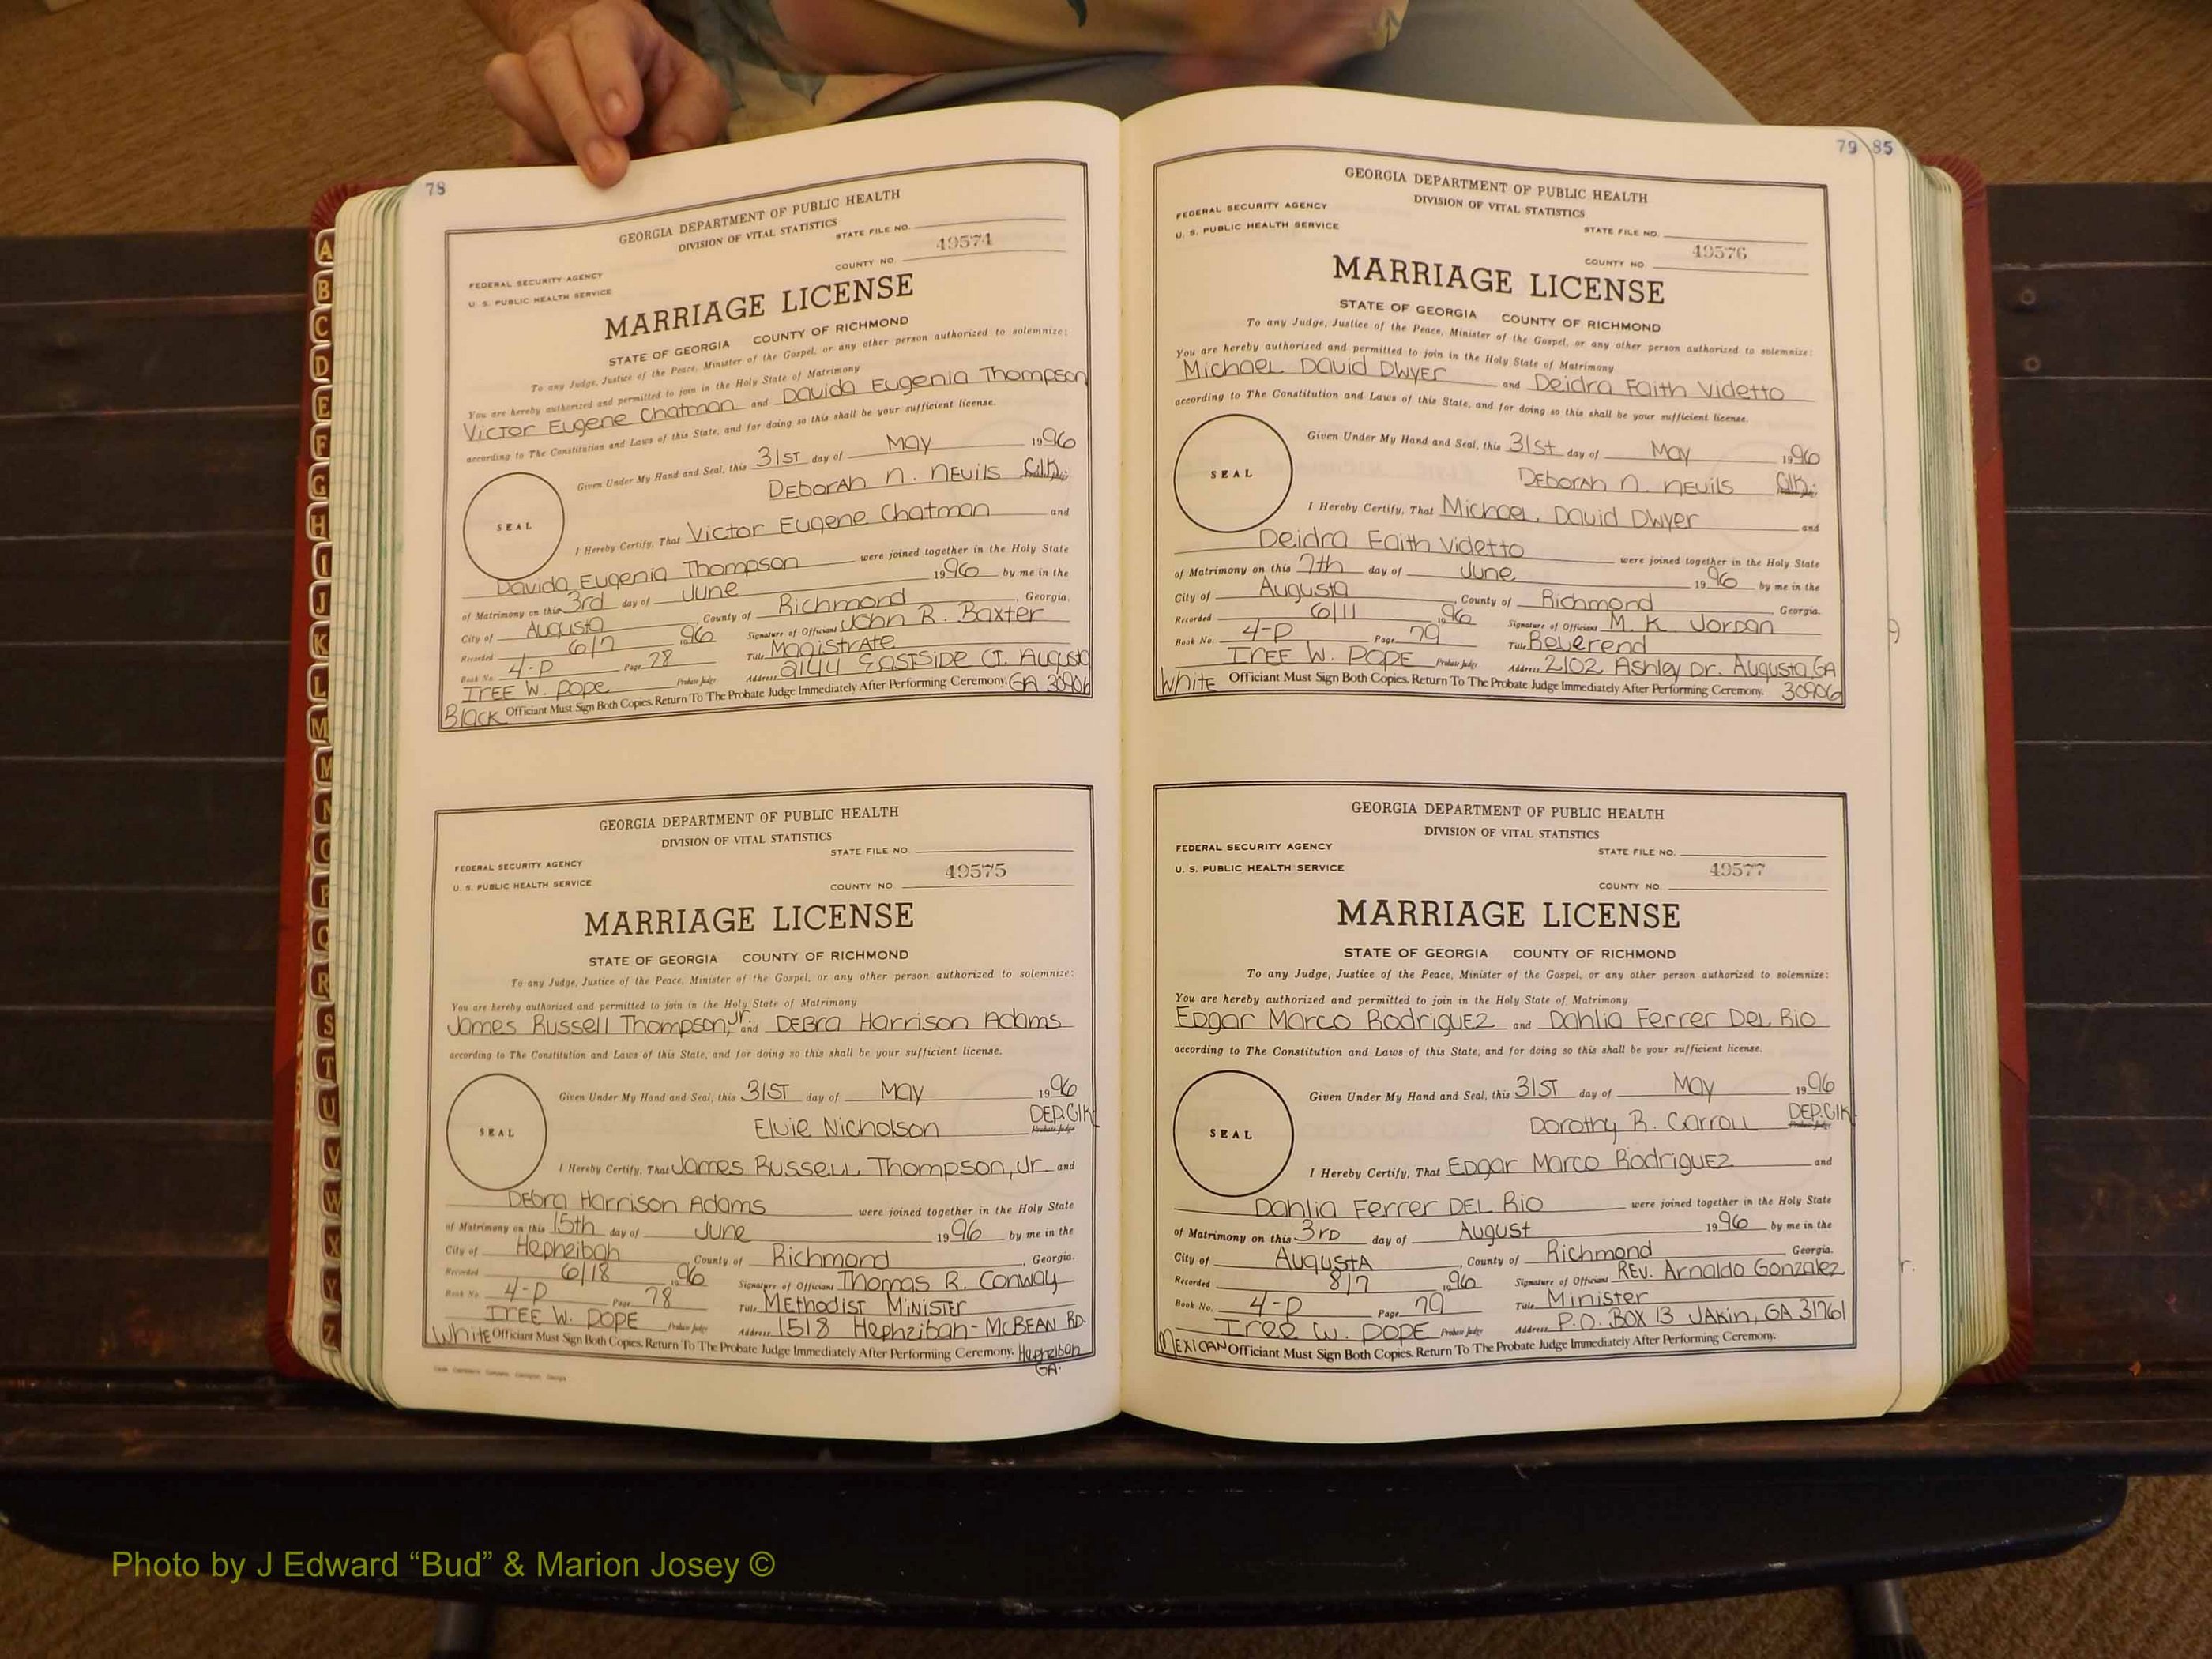 78
GEORGIA DEPARTMENT OF PUBLIC HEALTH
DIVISION OF VITAL STATISTICS
STATE FILE NO.
49574
COUNTY NO.
FEDERAL SECURITY AGENCY
U. S. PUBLIC HEALTH SERVICE
MARRIAGE LICENSE
STATE OF GEORGIA COUNTY OF RICHMOND
To any Judge, Justice of the Peace, Minister of the Gospel, or any other person authorized to solemnize:
You are hereby authorized and permitted to join in the Holy State of Matrimony
Victor Eugene Chatman and Davida Eugenia Thompson
according to The Constitution and Laws of this State, and for doing so this shall be your sufficient license.
Given Under My Hand and Seal, this 31ST day of May 1996
SEAL
Deborah N. Nevils Clk.
I Hereby Certify, That Victor Eugene Chatman and
Davida Eugenia Thompson were joined together in the Holy State
of Matrimony on this 3rd day of June 1996 by me in the
City of Augusta, County of Richmond, Georgia.
Recorded 6/7 1996 Signature of Officiant John R. Baxter
Book No. 4-P Page 78 Title Magistrate
IREE W. POPE Probate Judge Address 2144 Eastside Ct. Augusta
Black Officiant Must Sign Both Copies. Return To The Probate Judge Immediately After Performing Ceremony. GA 30906
GEORGIA DEPARTMENT OF PUBLIC HEALTH
DIVISION OF VITAL STATISTICS
STATE FILE NO.
FEDERAL SECURITY AGENCY
49575
U. S. PUBLIC HEALTH SERVICE
COUNTY NO.
MARRIAGE LICENSE
STATE OF GEORGIA COUNTY OF RICHMOND
To any Judge, Justice of the Peace, Minister of the Gospel, or any other person authorized to solemnize:
You are hereby authorized and permitted to join in the Holy State of Matrimony
James Russell Thompson, Jr. and Debra Harrison Adams
according to The Constitution and Laws of this State, and for doing so this shall be your sufficient license.
Given Under My Hand and Seal, this 31ST day of May 1996
SEAL
Elvie Nicholson DEP. Clk Probate Judge
I Hereby Certify, That James Russell Thompson, Jr and
Debra Harrison Adams were joined together in the Holy State
of Matrimony on this 15th day of June 1996 by me in the
City of Hephzibah, County of Richmond, Georgia.
Recorded 6/18 1996 Signature of Officiant Thomas R. Conway
Book No. 4-P Page 78 Title Methodist Minister
IREE W. POPE Probate Judge Address 1518 Hephzibah-McBean Rd.
White Officiant Must Sign Both Copies. Return To The Probate Judge Immediately After Performing Ceremony. Hephzibah
GA.
79 85
GEORGIA DEPARTMENT OF PUBLIC HEALTH
DIVISION OF VITAL STATISTICS
FEDERAL SECURITY AGENCY
U. S. PUBLIC HEALTH SERVICE
STATE FILE NO.
49576
COUNTY NO.
MARRIAGE LICENSE
STATE OF GEORGIA COUNTY OF RICHMOND
To any Judge, Justice of the Peace, Minister of the Gospel, or any other person authorized to solemnize:
You are hereby authorized and permitted to join in the Holy State of Matrimony
Michael David Dwyer and Deidra Faith Videtto
according to The Constitution and Laws of this State, and for doing so this shall be your sufficient license.
Given Under My Hand and Seal, this 31st day of May 1996
SEAL
Deborah N. Nevils Clk.
I Hereby Certify, That Michael David Dwyer and
Deidra Faith Videtto were joined together in the Holy State
of Matrimony on this 7th day of June 1996 by me in the
City of Augusta, County of Richmond Georgia.
Recorded 6/11 1996 Signature of Officiant M. K. Jordan
Book No. 4-P Page 79 Title Reverend
IREE W. POPE Probate Judge Address 2102 Ashley Dr. Augusta GA
White Officiant Must Sign Both Copies. Return To The Probate Judge Immediately After Performing Ceremony. 30906
GEORGIA DEPARTMENT OF PUBLIC HEALTH
DIVISION OF VITAL STATISTICS
FEDERAL SECURITY AGENCY
STATE FILE NO.
U. S. PUBLIC HEALTH SERVICE
49577
COUNTY NO.
MARRIAGE LICENSE
STATE OF GEORGIA COUNTY OF RICHMOND
To any Judge, Justice of the Peace, Minister of the Gospel, or any other person authorized to solemnize:
You are hereby authorized and permitted to join in the Holy State of Matrimony
Edgar Marco Rodriguez and Dahlia Ferrer Del Rio
according to The Constitution and Laws of this State, and for doing so this shall be your sufficient license.
Given Under My Hand and Seal, this 31ST day of May 1996
SEAL
Dorothy R. Carroll DEP. Clk Probate Judge
I Hereby Certify, That Edgar Marco Rodriguez and
Dahlia Ferrer Del Rio were joined together in the Holy State
of Matrimony on this 3rd day of August 1996 by me in the
City of Augusta, County of Richmond Georgia.
Recorded 8/7 1996 Signature of Officiant Rev. Arnaldo Gonzalez
Book No. 4-P Page 79 Title Minister
Iree W. Pope Probate Judge Address P.O. Box 13 Jakin, GA 31761
MEXICAN Officiant Must Sign Both Copies. Return To The Probate Judge Immediately After Performing Ceremony.
A
B
C
D
E
F
G
H
I
J
K
L
M
M
N
O
P
Q
R
S
T
U
V
W
X
Y
Z
Photo by J Edward “Bud” & Marion Josey ©